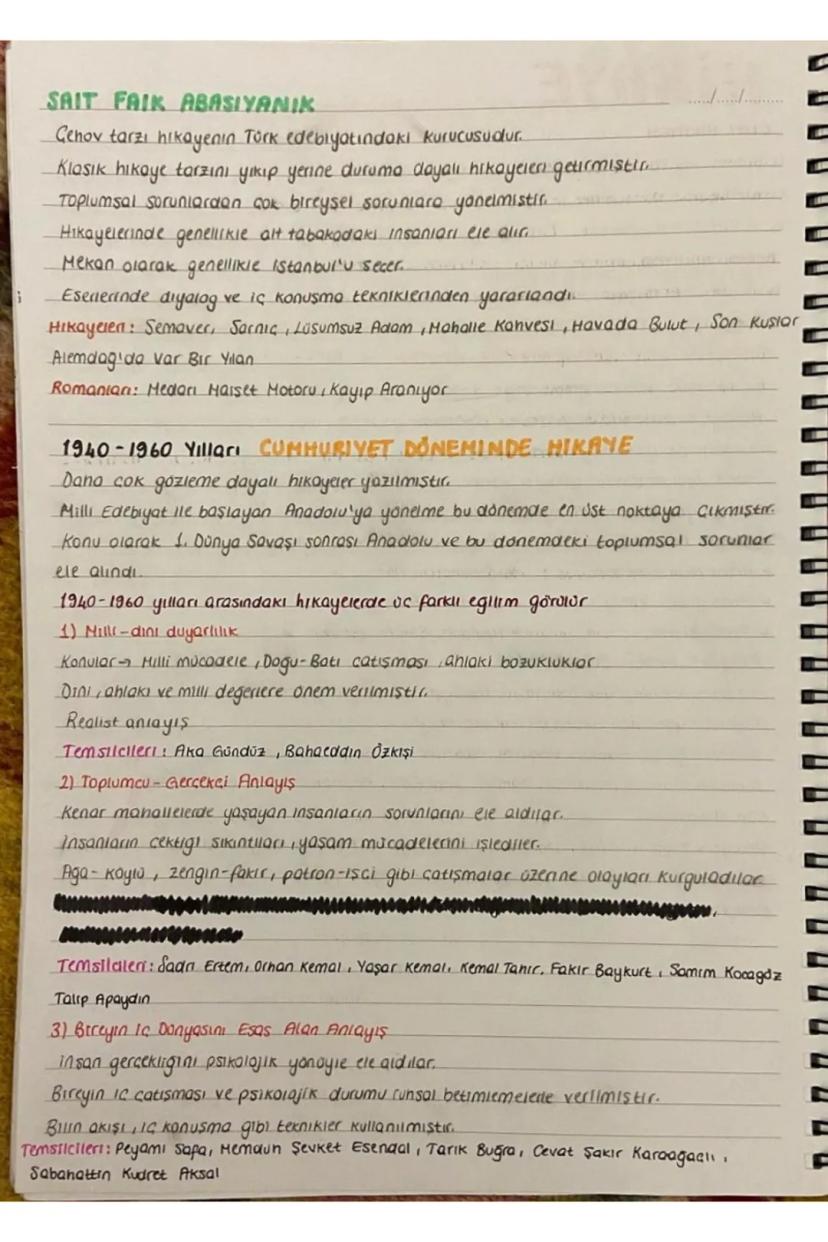 SAIT FAIK ABASIYANIK
...../...../.........
Çehov tarzı hikayenin Türk edebiyatındaki kurucusudur.
Klasik hikaye tarzını yıkıp yerine duruma dayalı hikayeleri getirmiştir.
Toplumsal sorunlardan çok bireysel sorunlara yönelmiştir.
Hikayelerinde genellikle alt tabakadaki insanları ele alır.
Mekan olarak genellikle İstanbul'u seçer.
Eserlerinde diyalog ve iç konuşma tekniklerinden yararlandı.
Hikayeleri: Semaver, Sarnıç, Lüsumsuz Adam, Mahalle Kahvesi, Havada Bulut, Son Kuşlar
Alemdağ'da Var Bir Yılan
Romanları: Medarı Maişet Motoru, Kayıp Aranıyor
1940-1960 Yılları CUMHURİYET DÖNEMİNDE HİKAYE
Daha çok gözleme dayalı hikayeler yazılmıştır.
Milli Edebiyat ile başlayan Anadolu'ya yönelme bu dönemde en üst noktaya çıkmıştır.
Konu olarak 1. Dünya Savaşı sonrası Anadolu ve bu dönemdeki toplumsal sorunlar
ele alındı.
1940-1960 yılları arasındaki hikayelerde üç farklı eğilim görülür
1) Milli-dini duyarlılık
Konular→ Milli mücadele, Doğu-Batı çatışması, ahlaki bozukluklar
Dini, ahlaki ve milli değerlere önem verilmiştir.
Realist anlayış
Temsilcileri: Aka Gündüz, Bahaeddin Özkişi
2) Toplumcu-Gerçekçi Anlayış
Kenar mahallelerde yaşayan insanların sorunlarını ele aldılar.
İnsanların çektiği sıkıntıları, yaşam mücadelerini işlediler.
Ağa-köylü, zengin-fakir, patron-işçi gibi çatışmalar üzerine olayları kurguladılar.
Temsilcileri: Sadri Ertem, Orhan Kemal, Yaşar Kemal, Kemal Tahir, Fakir Baykurt, Samim Kocagöz
Talip Apaydın
3) Bireyin İç Dünyasını Esas Alan Anlayış
İnsan gerçekliğini psikolojik yönüyle ele aldılar.
Bireyin iç çatışması ve psikolojik durumu ruhsal betimlemelerle verilmiştir.
Bilin akışı, iç konuşma gibi teknikler kullanılmıştır.
Temsilcileri: Peyami Safa, Memduh Şevket Esendal, Tarık Buğra, Cevat Şakir Karaağaçlı,
Sabahattin Kudret Aksal